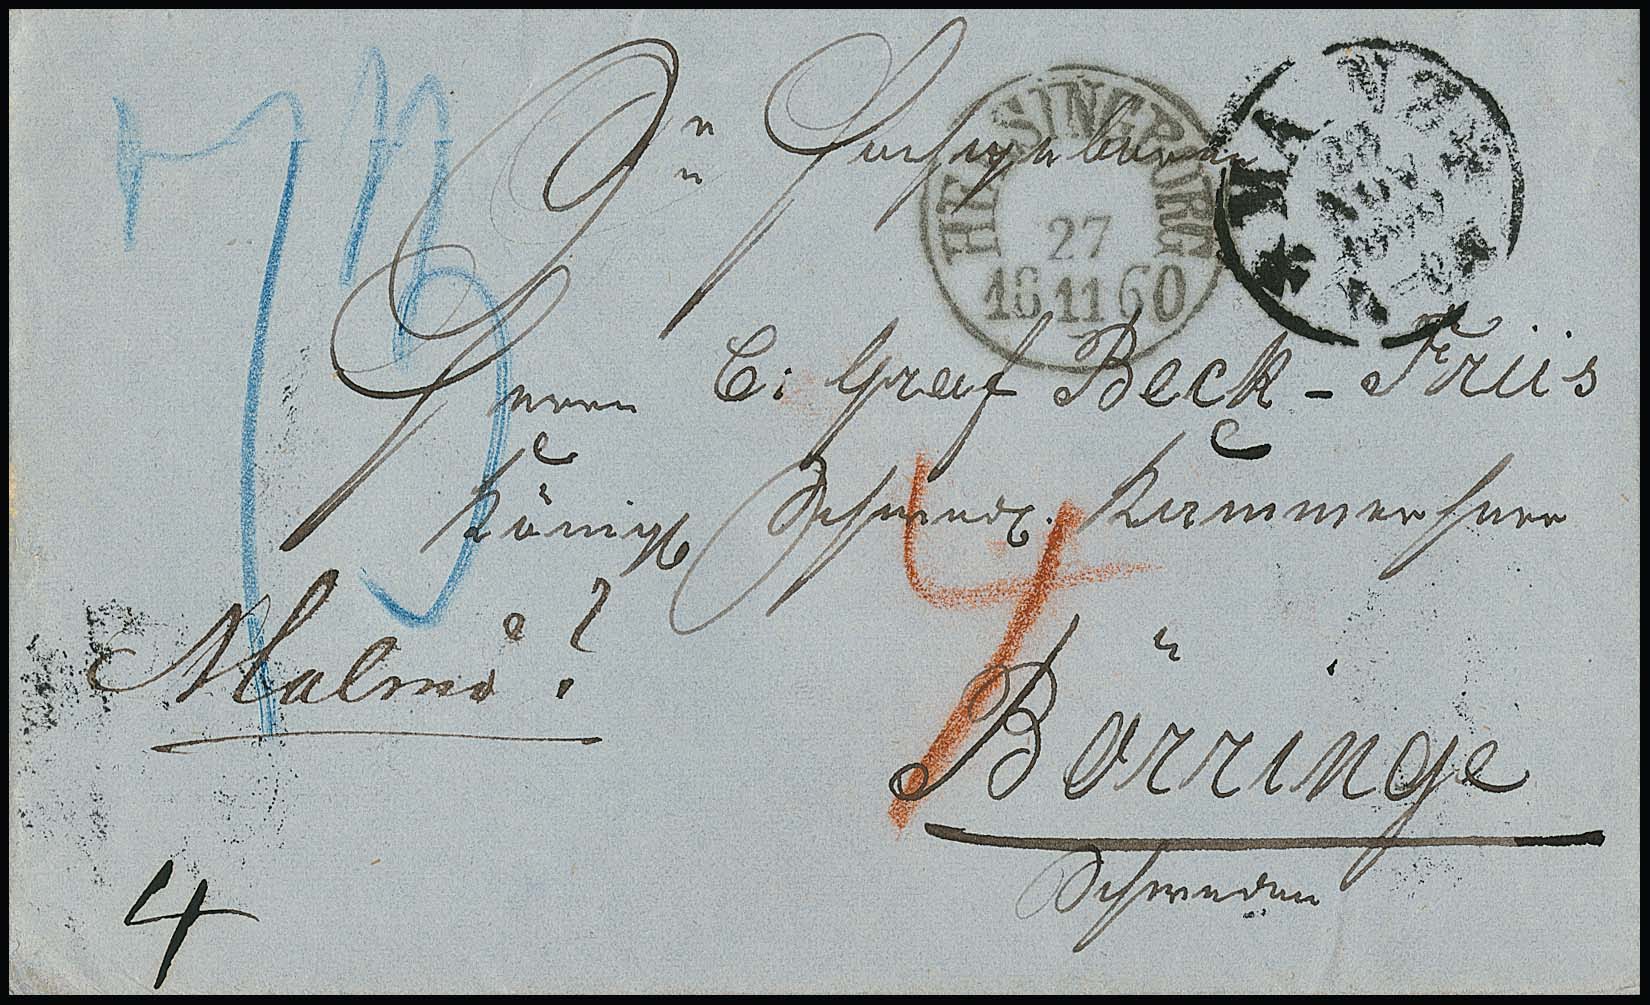 HELSINGBORG
27
18 11 60
Sr Hochgeboren
Herrn C: Graf Beck-Friis
Königl Schwed. Kammerherr
Malmö?
Börringe
Schweden
4
4